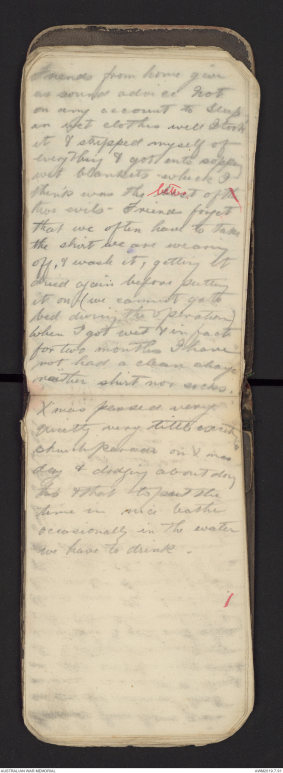 Friends from home give
us sound advice Not
on any account to sleep
in wet clothes well I took
it & stripped myself of
everything & got into soppy
wet blankets which I
think was the of the
two evils - Friends forget
that we often have to take
the shirt we are wearing
off, & wash it, getting it
dried again before putting
it on (we cannot go to
bed during the operation)
When I got wet & in fact
for two months I have
not had a clean change
neither shirt nor socks.
X'mas passed very
quietly very little
church parade on X mas
day & dodging about doing
this & that to put the
time in nice bathe
occasionally in the water
we have to drink.
AUSTRALIAN WAR MEMORIAL